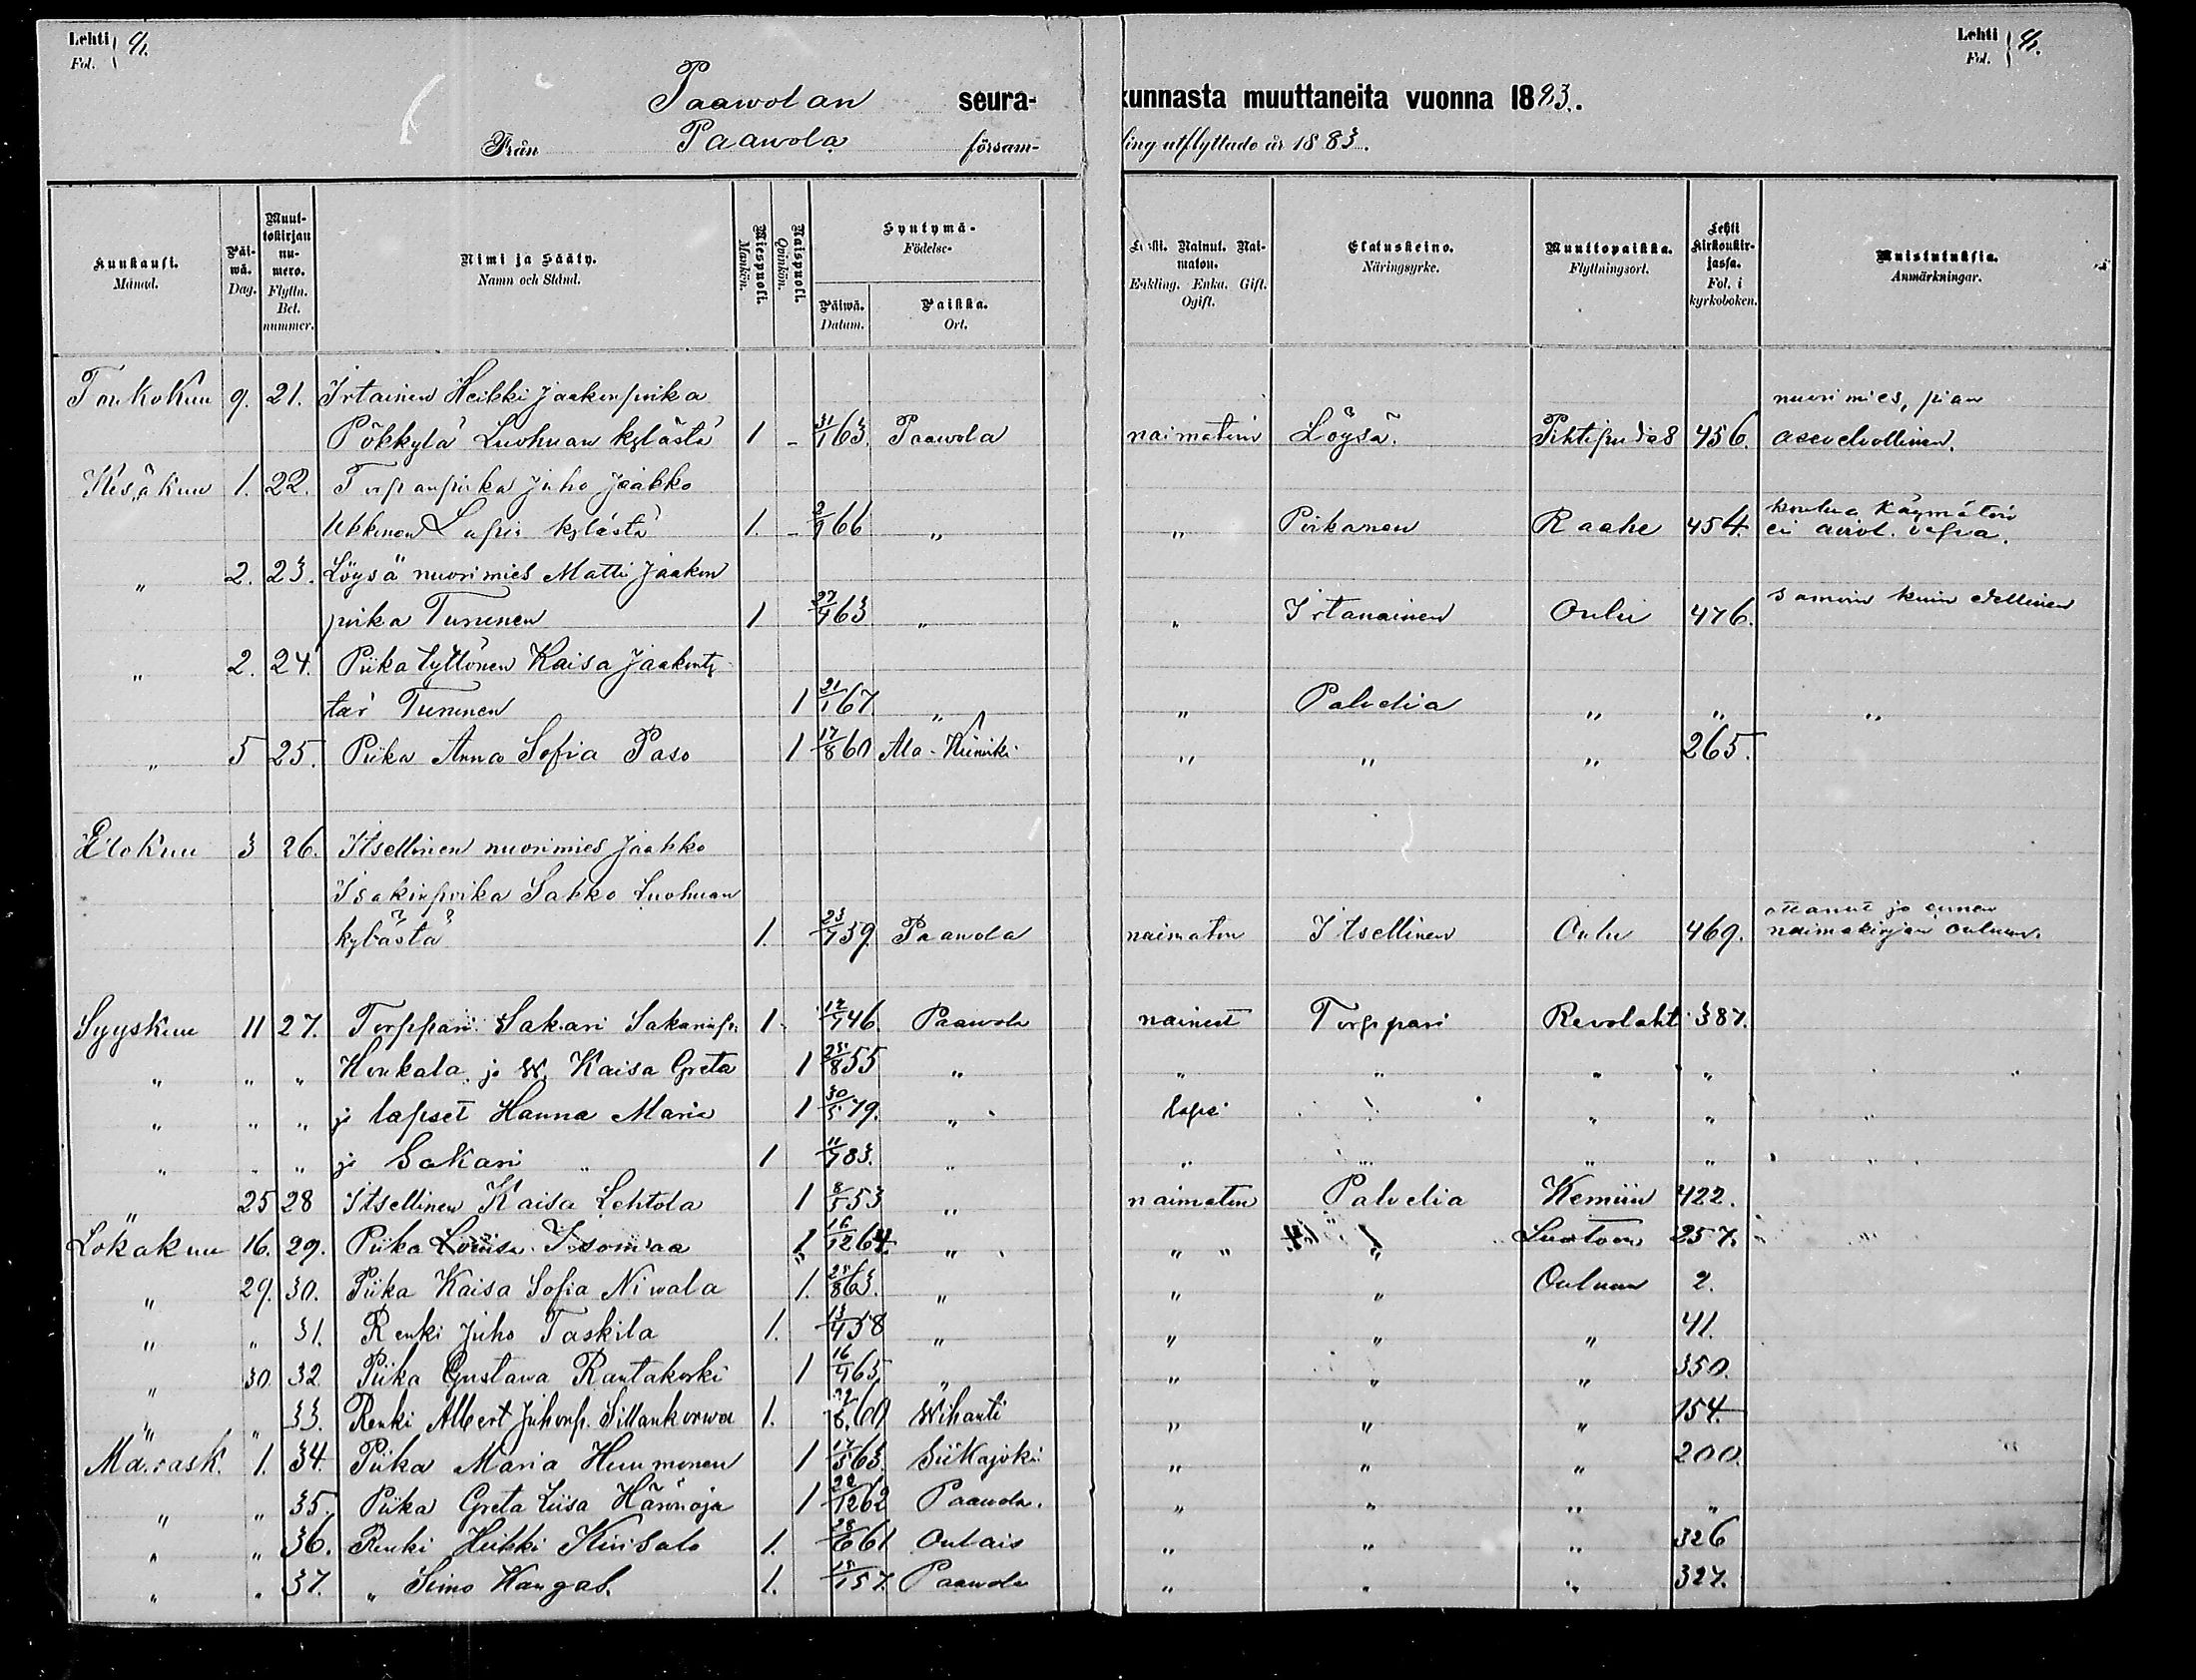 Lehti Fol. 4. Lehti Fol. 4.
Paawolan seurakunnasta muuttaneita vuonna 1883.
Från Paawola församling utflyttade år 1883.
Kuukausi. Månad. Päiwä. Dag. Muuttokirjan numero. Flyttn. Bet. nummer. Nimi ja Sääty. Namn och Stånd. Miespuoli. Mankön. Naispuoli. Qvinkön. Syntymä- Födelse- Päiwä. Datum. Paikka. Ort. Leski. Nainut. Naimaton. Enkling. Enka. Gift. Ogift. Elatuskeino. Näringsyrke. Muuttopaikka. Flyttningsort. Lehti kirkonkirjassa. Fol. i kyrkoboken. Muistutuksia. Anmärkningar.
Toukokuu 9. 21. Irtainen Heikki Jaakonpoika nuorimies, pian
Pökkylä Luohuan kylästä 1 - 31/1 63. Paawola naimatoin Löysä. Pihtipudas 456. asevelvollinen.
Kesäkuu 1. 22. Torpanpoika Juho Jaakko koulua käymätöin
Ukkonen Lapin kylästä 1. - 2/9 66 " " Poikanen Raahe 454. ei aviol. vapaa.
" 2. 23. Löysä nuorimies Matti Jaakon samoin kuin edellinen
poika Turunen 1 27/4 63 " " Irtanainen Oulu 476.
" 2. 24. Piika tyttönen Kaisa Jaakonty
tär Turunen 1 21/1 67 " " Palvelia " " "
" 5 25. Piika Anna Sofia Paso 1 17/8 60 Ala-Kiiminki " " " 265.
Elokuu 3 26. Itsellinen nuorimies Jaakko
Isakinpoika Sakko Luohuan ottanut jo ennen
kylästä 1. 23/7 39 Paawola naimaton Itsellinen Oulu 469. naimakirjan Ouluun.
Syyskuu 11 27. Torppari Sakari Sakarinp. 1. 12/1 46 Paawola nainut Torppari Revolahti 387.
" " " Honkala ja W. Kaisa Greta 1 25/8 55 " " " " "
" " " ja lapset Hanna Maria 1 30/5 79. " lapsi " "
" " " ja Sakari " 1 11/7 83. " " " " "
" 25 28 Itsellinen Kaisa Lehtola 1 8/5 53 " naimaton Palvelia Kemiin 422.
Lokakuu 16. 29. Piika Loviisa Isomaa 1 16/12 64. " " " " Luotoon 257.
" 29. 30. Piika Kaisa Sofia Niwala 1. 25/8 63. " " " Ouluun 2.
" " 31. Renki Juho Taskila 1. 13/4 58 " " " " 41.
" 30. 32 Piika Gustawa Rantakoski 1 16/4 65 " " " " 350.
" " 33. Renki Albert Juhonp. Sillankorwa 1. 22/8 60 Wihanti " " " 154.
Marrask. 1. 34. Piika Maria Huumonen 1 17/5 63. Siikajoki " " " 200.
" " 35. Piika Greta Liisa Härmöja 1 22/12 62 Paawola. " " " "
" " 36. Renki Heikki Kiiskalo 1. 28/6 61 Oulais " " " 326
" " 37. " Simo Kangas. 1. 15/1 57. Paawola " " " 327.